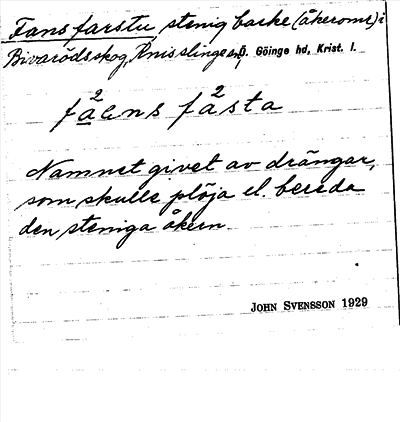 Fans farstu, stenig backe (åkeromr) i
Bivarödsskog, Knisslinge sn, Ö. Göinge hd, Krist. l.
fa2ns fa2sta
Namnet givet av drängar,
som skulle plöja el. bereda
den steniga åkern.
JOHN SVENSSON 1929